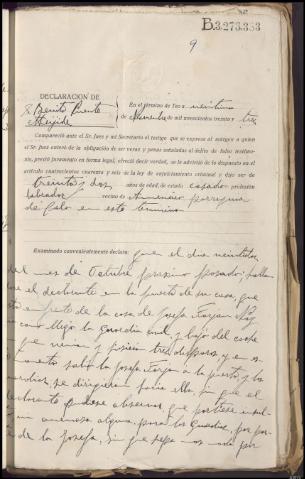 B.3.273.353
9
DECLARACION DE
D. Benito Puente
En el término de Teo a veintiuno
de Noviembre de mil novecientos treinta y tres
Compareció ante el Sr. Juez y mi Secretario el testigo que se expresa al margen a quien
el Sr. Juez enteró de la obligación de ser veraz y penas señaladas al delito de falso testimo-
nio, prestó juramento en forma legal, ofreció decir verdad, se le advirtió de lo dispuesto en el
artículo cuatrocientos cuarenta y seis de la ley de enjuiciamiento criminal y dijo ser de
treinta y dos años de edad, de estado casado profesión
labrador vecino de parroquia
de Calo en este término
Examinado convenientemente declara: que el día veintidos
del mes de Octubre próximo pasado, hallan-
el declarante en la puerta de su casa, que
enfrente de la casa de Josefa
como llegó la guardia civil, y bajó del coche
que venía y hicieron tres disparos, y en
momento salió la Josefa a la puerta y los
guardias, se dirigieron hacia ella, sin que el
declarante pudiese observar, que
amenaza alguna, para los Guardias, por par-
te de la Josefa, sin que sepa nos más por